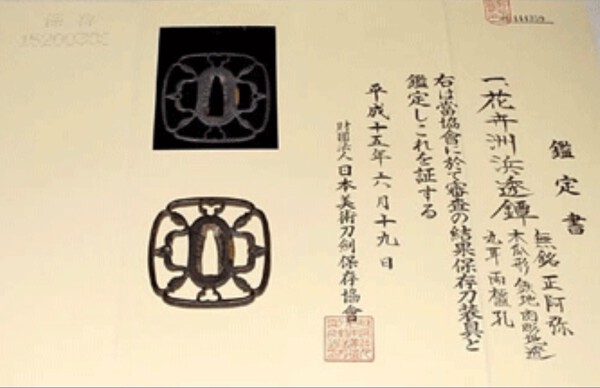 鑑定書
一、花卉洲浜透鐔
無銘 正阿弥
木瓜形 鉄地 肉彫地透
丸耳 両櫃孔
右は當協會に於て審査の結果保存刀装具と
鑑定しこれを証する
平成十五年六月十九日
財団法人 日本美術刀剣保存協會